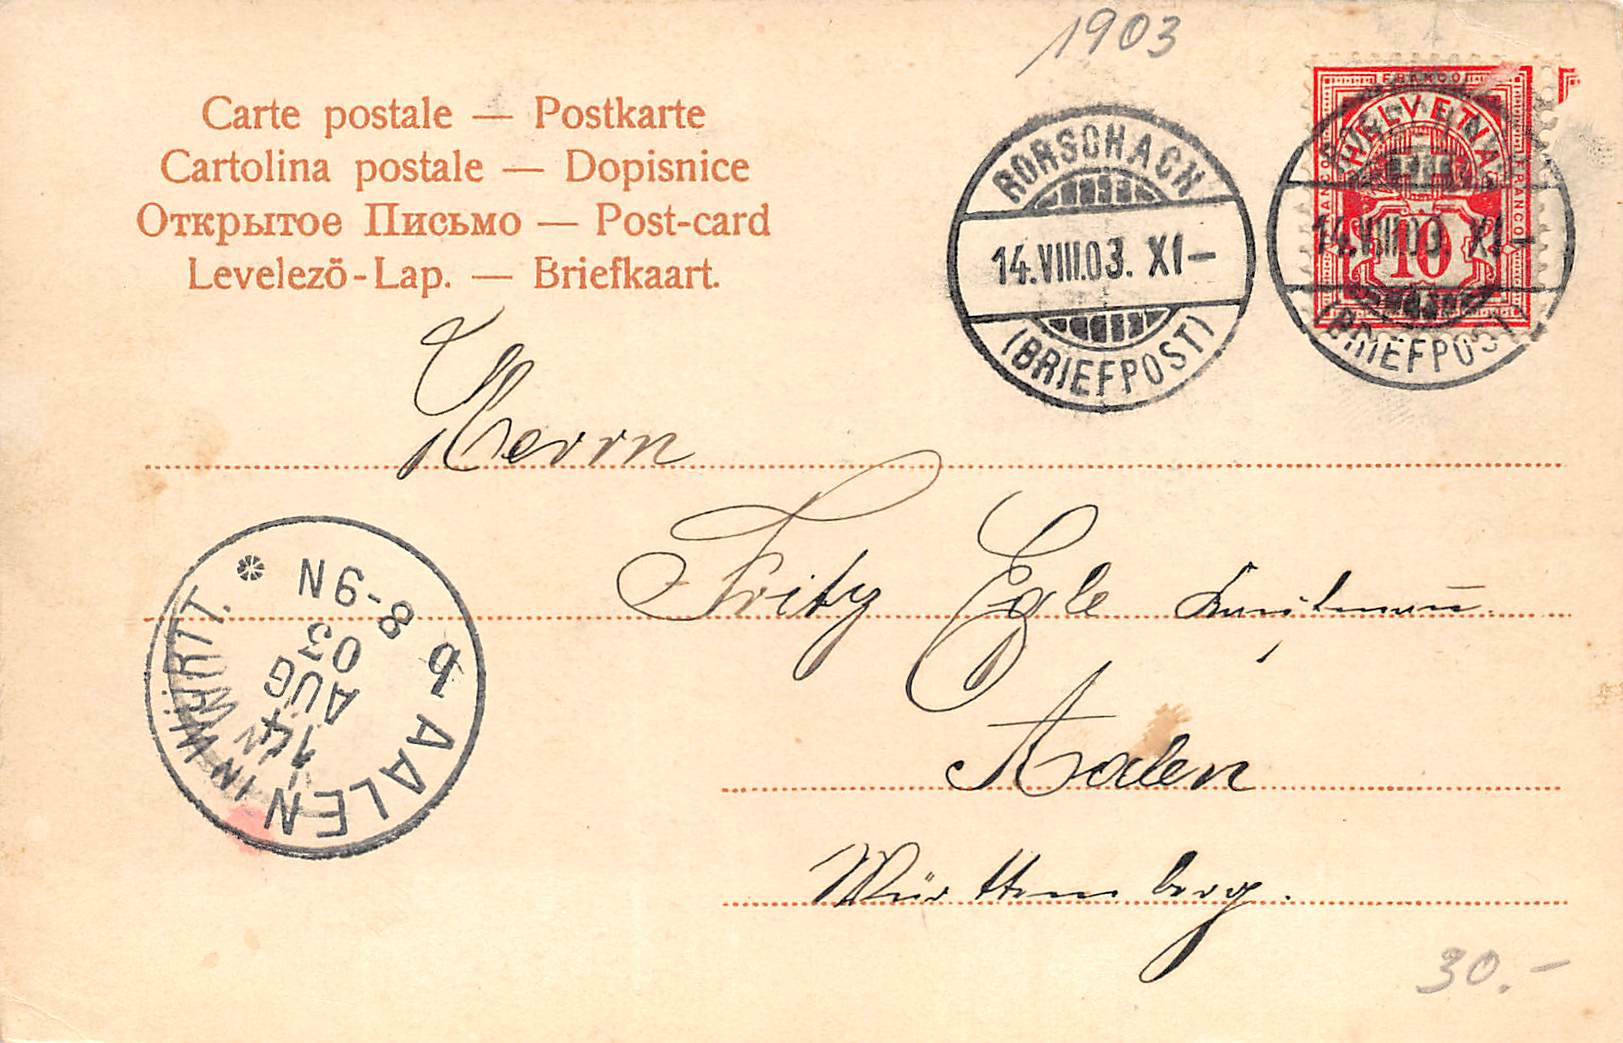 1903
Carte postale — Postkarte
Cartolina postale — Dopisnice
Открытое Письмо — Post-card
Levelező-Lap. — Briefkaart.
RORSCHACH
14.VIII.03. XI–
(BRIEFPOST)
FRANCO
HELVETIA
FRANCO
FRANCO
10
14.VIII.03. XI–
(BRIEFPOST)
Herrn
Fritz Egle Kaufmann
Aalen
Württemberg.
b AALEN IN WÜRTT. *
14
AUG
03
8-9N
30.–